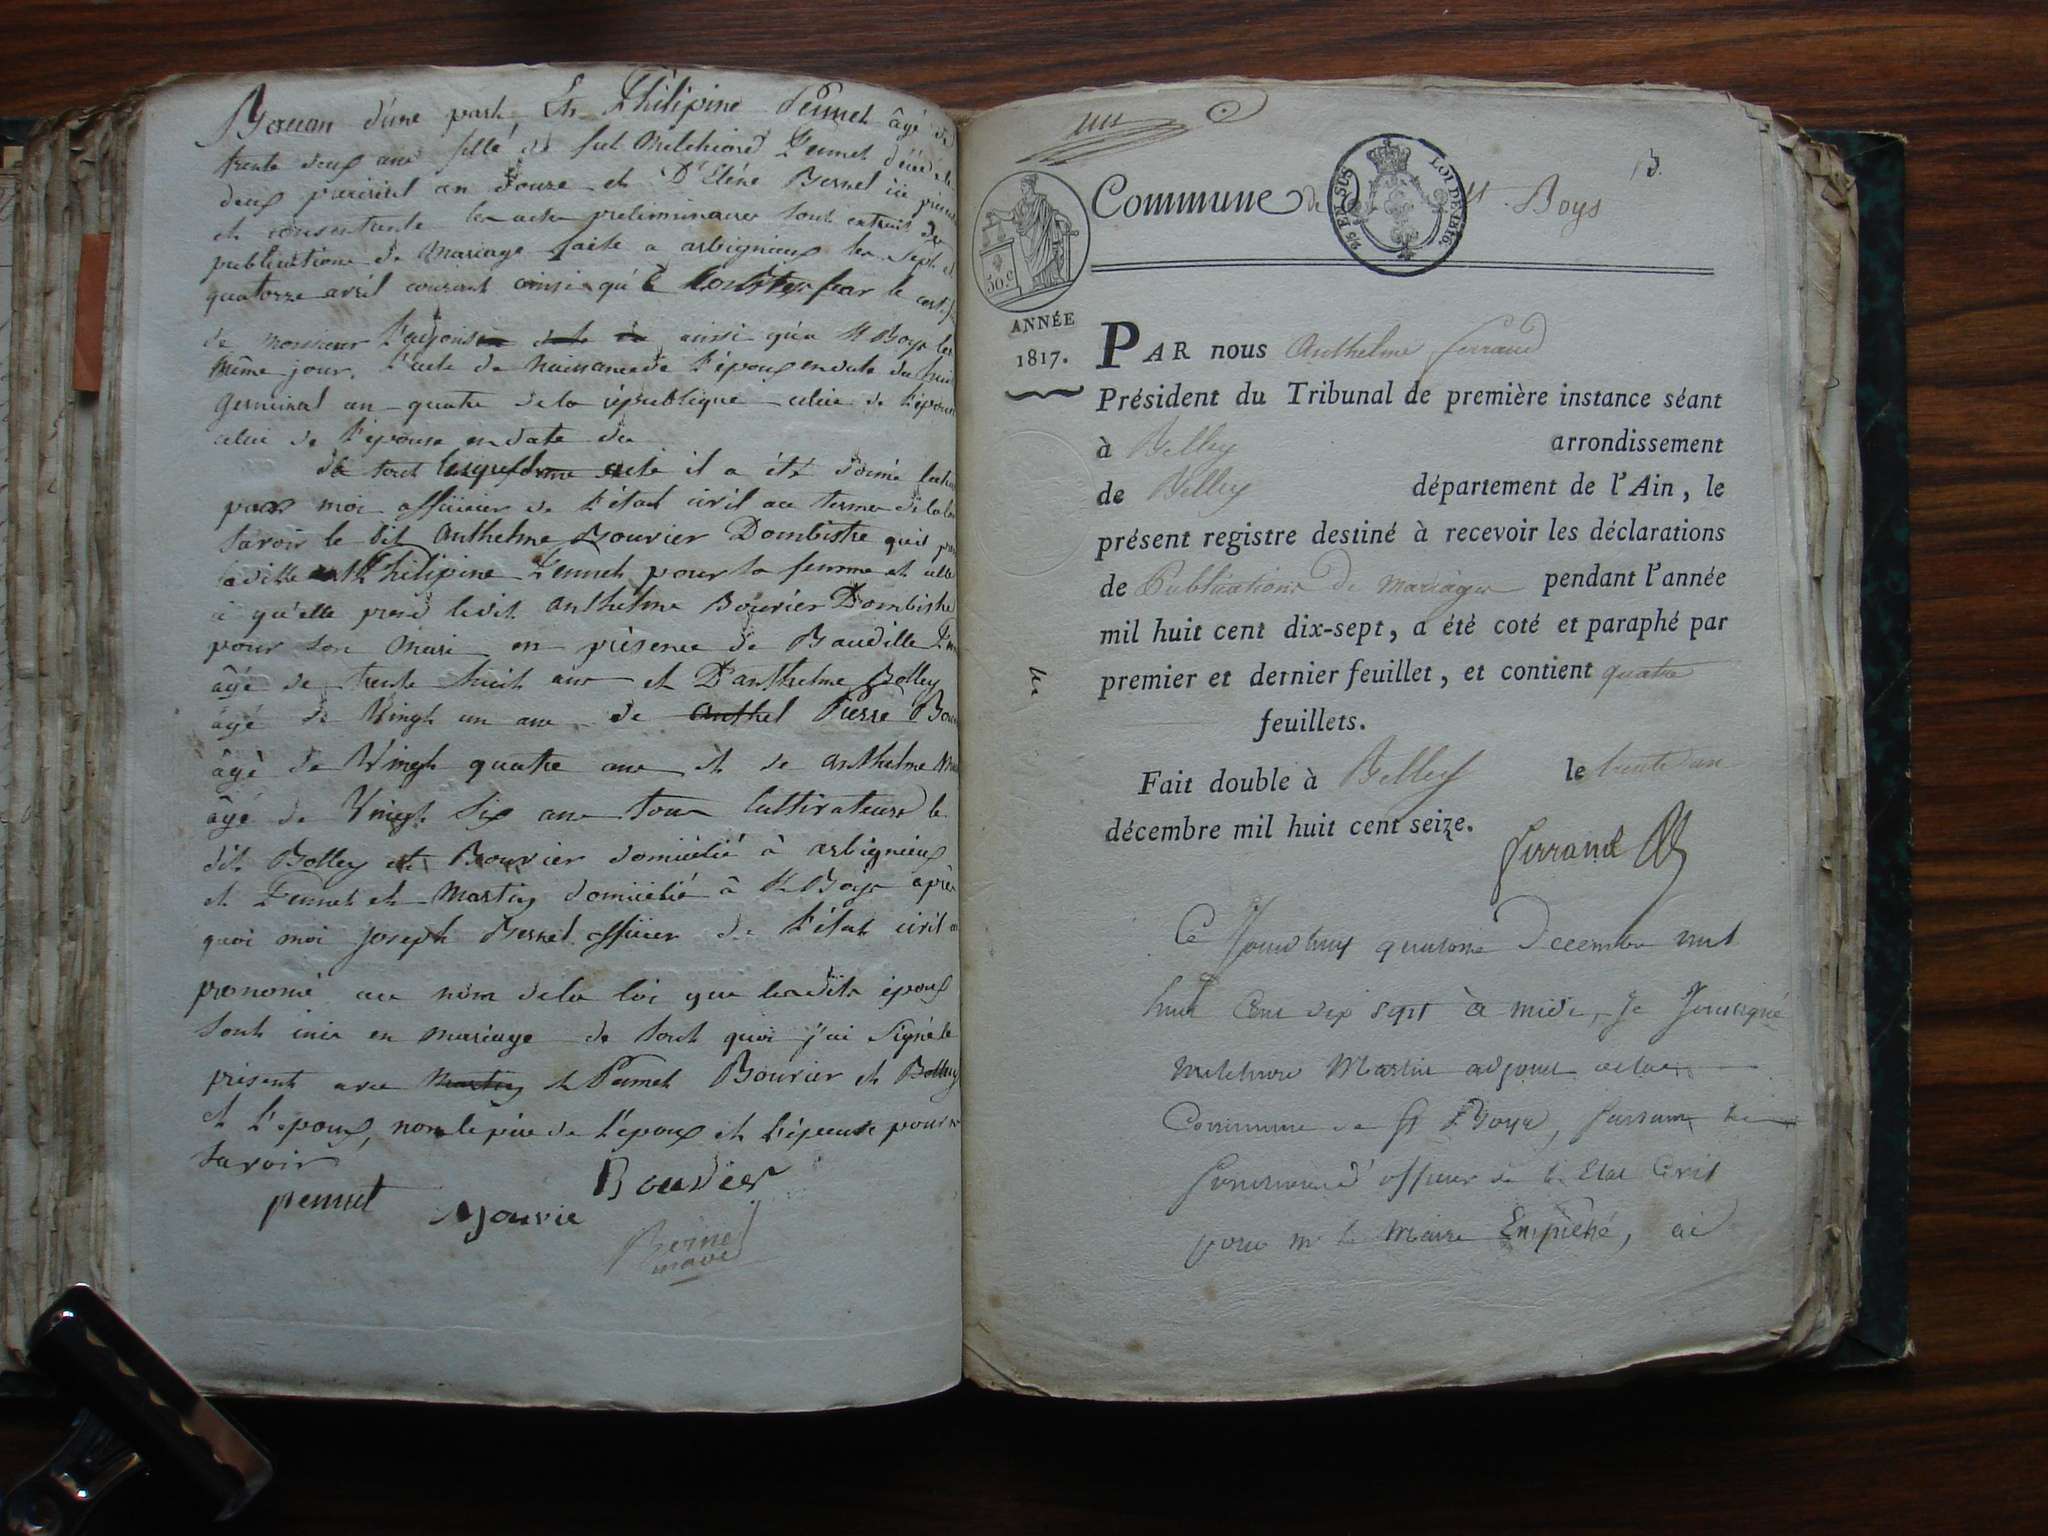 d'une part, Et Philipine Peunet âgé de
trente deux ans fille de feu Melchiord Peunet décédé le
deux prairial an douze et D'Eléne Bernel ici
et consentante les actes preliminaires sont extrait des
publications de Mariage faite a arbignieux les sept et
quatorze avril courant ainsi qu'à par le
de monsieur ainsi qu'a St Boys les
même jour. L'acte de Naissance de l'époux en date du
Germinal an quatre de la république celui de l'épouse
celui de l'épouse en date du
de tout acte il a été donné
par moi officier de l'état civil au terme de la loi
savoir le dit Anthelme Bouvier Dombistre qu'il
ladite Philipine Peunet pour sa femme et celle
ci qu'elle prend ledit Anthelme Bouvier Dombistre
pour son Mari en présence de Baudille
âgé de trente huit ans et D'anthelme Bolley
âgé de Vingt un ans de Anthel Pierre
âgé de Vingt quatre ans et de Anthelme
âgé de Vingt Six ans tous Cultivateurs le
dit Bolley et Bouvier domicilié à arbignieux
et Peunet et Martin domicilié à St Boys après
quoi moi joseph Bernel officier de l'état civil
prononcé au nom de la loi que lesdits époux
sont unis en mariage de tout quoi j'ai Signé le
présent avec Martin et Peunet Bouvier et Bolley
et l'époux, non le père de l'époux et l'épouse pour
savoir
peunet Bouvier
Bouvie
Berne
maire
Commune de St. Boys
5/5 EN SUS LOI DE 1816.
50.c
ANNÉE
1817.
PAR nous Anthelme Ferrand
Président du Tribunal de première instance séant
à Belley arrondissement
de Belley département de l'Ain, le
présent registre destiné à recevoir les déclarations
de Publications de mariages pendant l'année
mil huit cent dix-sept, a été coté et paraphé par
premier et dernier feuillet, et contient quatre
feuillets.
Fait double à Belley le trente un
décembre mil huit cent seize.
Ferrand
Ce Jourdhuy quatorze Decembre mil
huit Cent dix sept à midi, Je Soussigné
Melchiore Martin adjoint de la
Commune de St Boys, faisant les
fonctions d'officier de l'Etat Civil
pour mr le Maire Empêché, ai